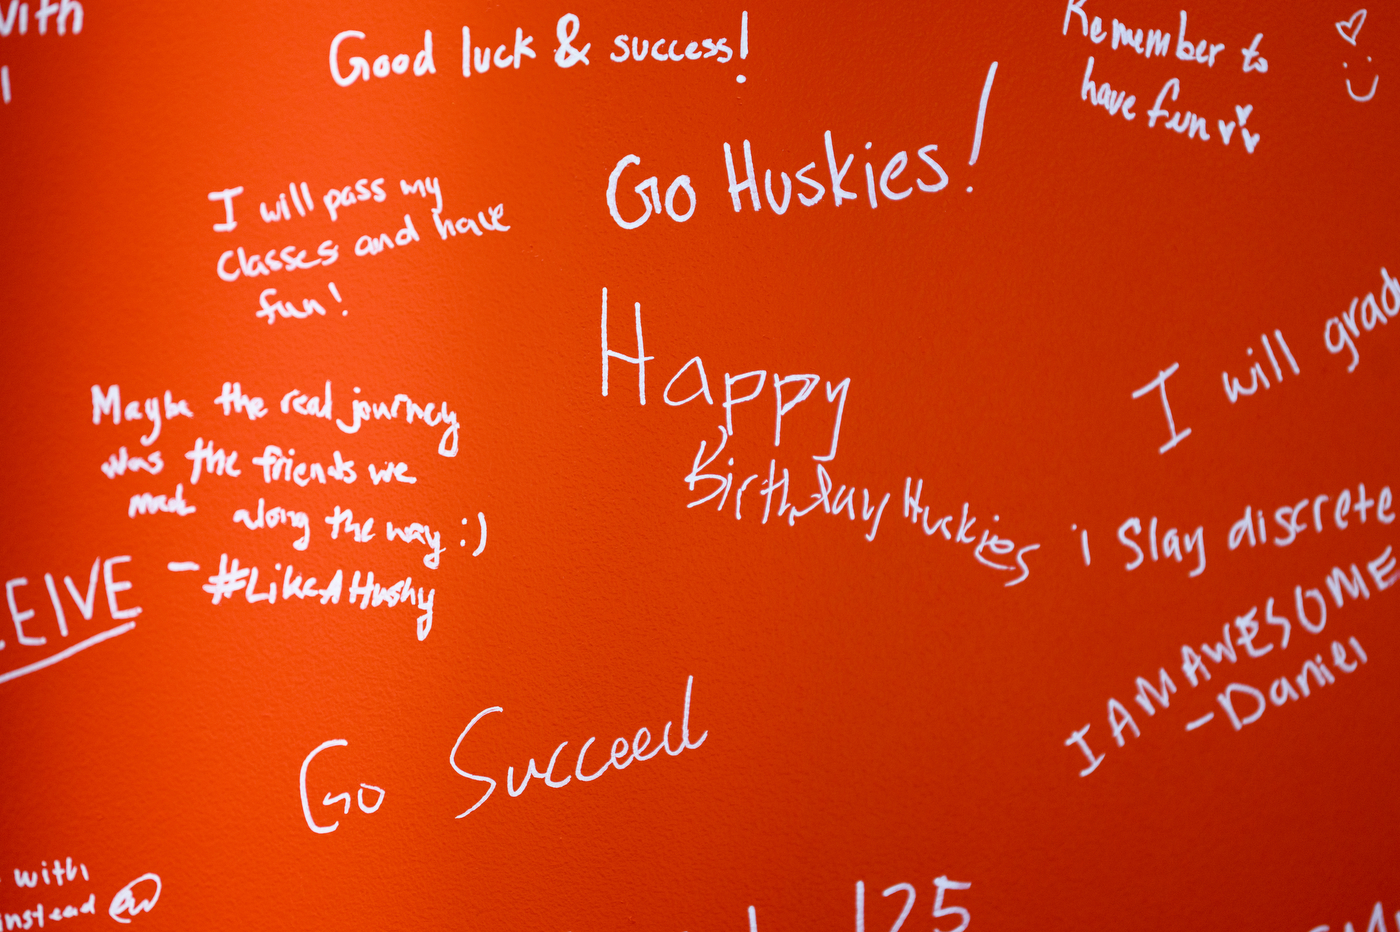 with
Good luck & success!
Remember to
have fun
Go Huskies!
I will pass my
classes and have
fun!
Happy
Birthday Huskies
I will grad
Maybe the real journey
was the friends we
made along the way :)
- #LikeAHusky
EIVE
i slay discrete
I AM AWESOME
-Daniel
Go Succeed
with
instead
125